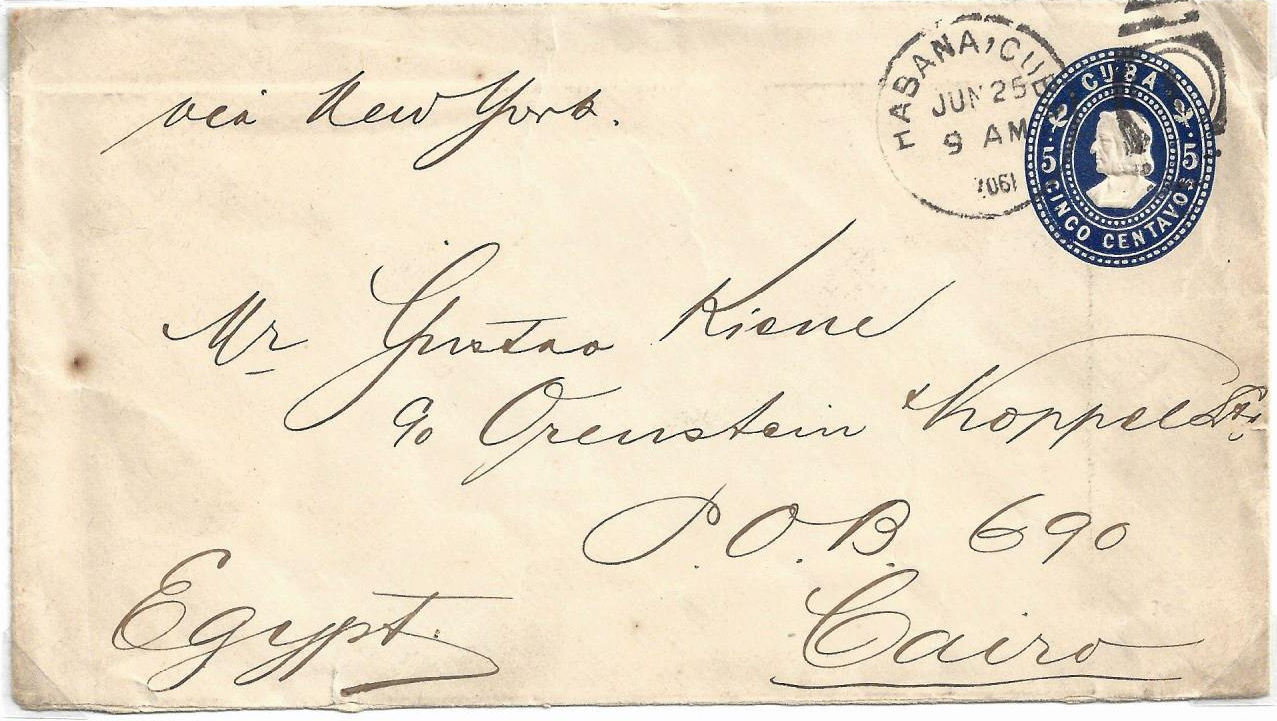 via New York.
HABANA, CUBA
JUN 25
9 AM
1907
CUBA
5 5
CINCO CENTAVOS
Mr Gustav Kiene
c/o Orenstein & Koppel Ltd
P.O.B. 690
Cairo
Egypt.